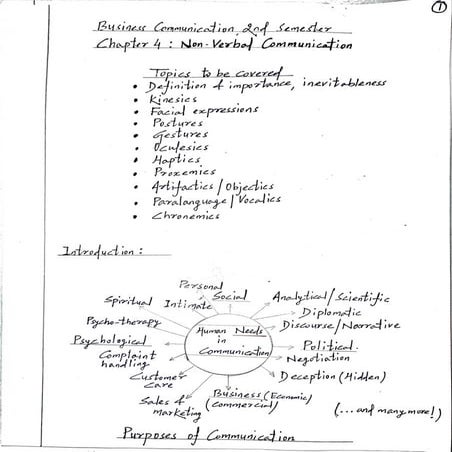 1
Business Communication 2nd Semester
Chapter 4 : Non-Verbal Communication
Topics to be covered
• Definition & importance, inevitableness
• Kinesics
• Facial expressions
• Postures
• Gestures
• Oculesics
• Haptics
• Proxemics
• Artifactics / Objectics
• Paralanguage / Vocalics
• Chronemics
Introduction :
Personal
Social
Intimate
Spiritual
Psycho-therapy
Psychological
Complaint handling
Customer care
Sales & marketing
Business (Economic)
(commercial)
Human Needs
in
Communication
Analytical / Scientific
Diplomatic
Discourse / Narrative
Political
Negotiation
Deception (Hidden)
(...and many more!)
Purposes of Communication